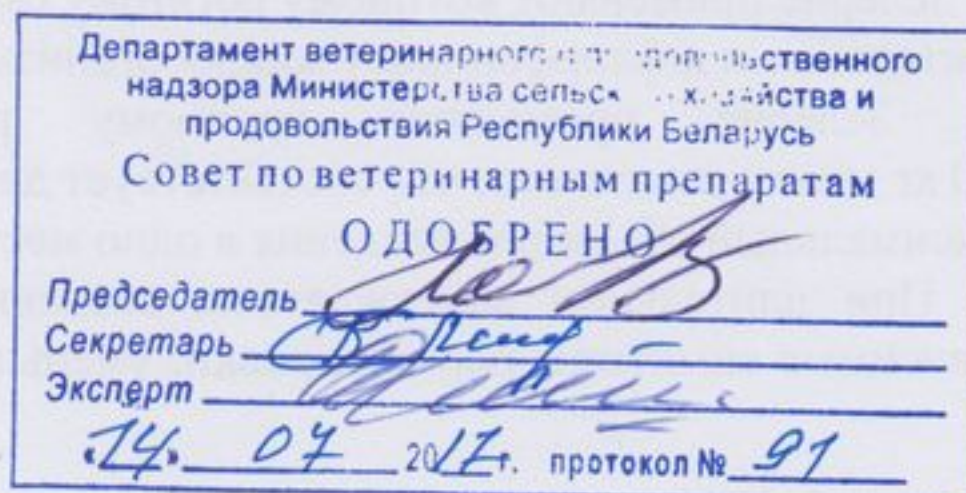 Департамент ветеринарного и продовольственного
надзора Министерства сельского хозяйства и
продовольствия Республики Беларусь
Совет по ветеринарным препаратам
ОДОБРЕНО
Председатель
Секретарь
Эксперт
«14» 07 2017г. протокол № 91